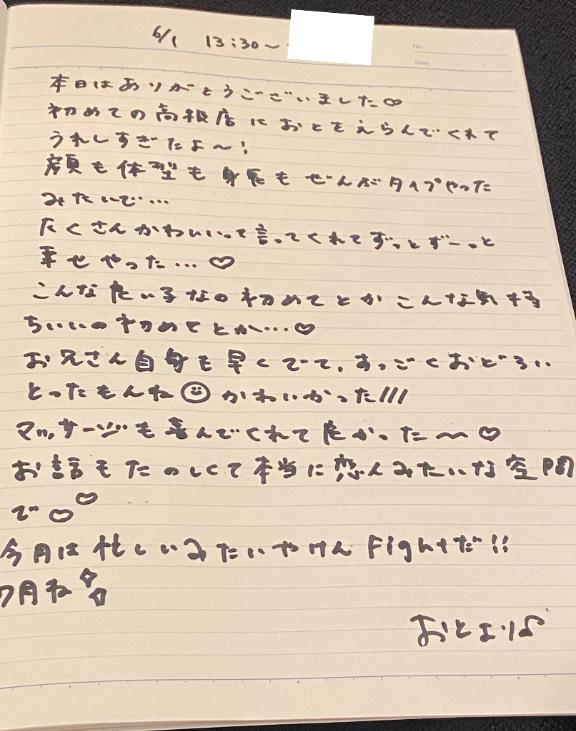 6/1 13:30〜
No.
Date
本日はありがとうございました♡
初めての高級店におとをえらんでくれて
うれしすぎたよ〜!
顔も体型も身長もぜんぶタイプやった
みたいで…
たくさんかわいいって言ってくれてずっとずーっと
幸せやった…♡
こんなたい子なの初めてとかこんな気持
ちいいの初めてとか…♡
お兄さん自身も早くでて、すっごくおどろい
とったもんね☺かわいかった///
マッサージも喜んでくれてたかった〜♡
お話もたのしくて本当に恋人みたいな空間
で♡♡
今月は忙しいみたいやけんFightだ!!
7月ね
おとより♪